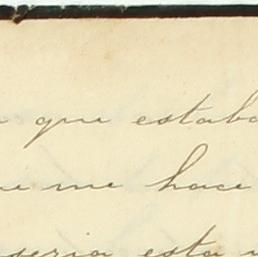 que estaba
me hace
seria esta